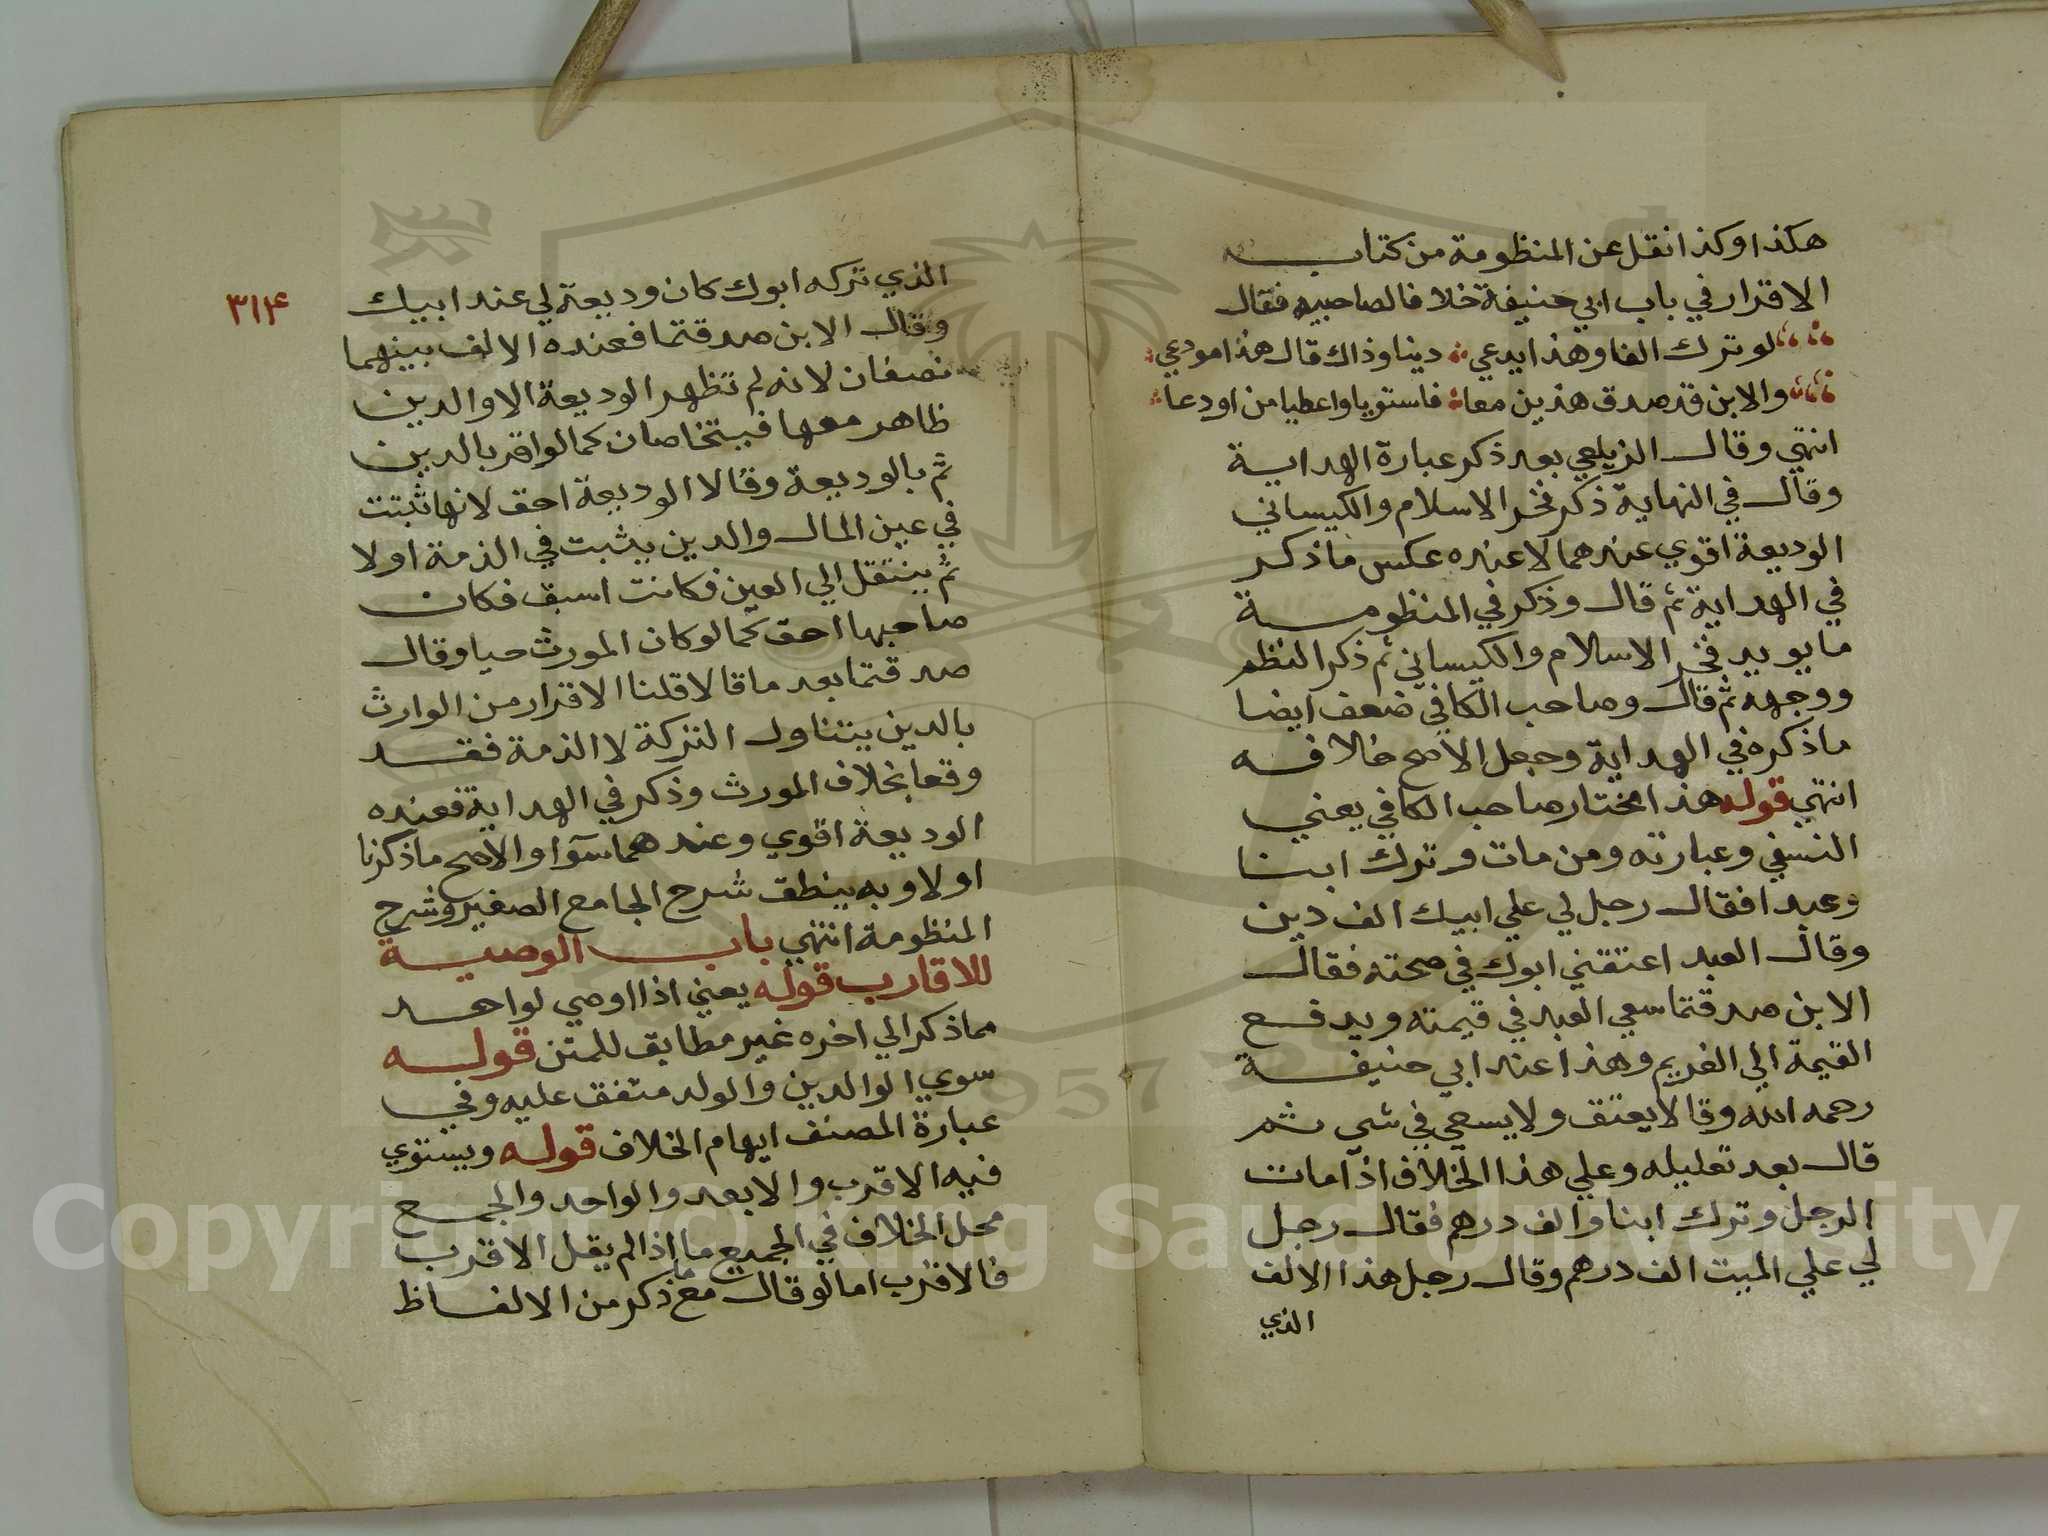 هكذا وكذا نقل عن المنظومة من كتاب
الاقرار في باب ابي حنيفة خلافا لصاحبيه فقال
لو ترك الفا وهذا يدعي دينا وذاك قال هذا مودعي
والابن قد صدق هذين معا فاستويا واعطيا من اودعا
انتهي وقال الزيلعي بعد ذكر عبارة الهداية
وقال في النهاية ذكر فخر الاسلام والكيساني
الوديعة اقوي عندهما لا عنده عكس ما ذكر
في الهداية ثم قال وذكر في المنظومة
ما يويد فخر الاسلام والكيساني ثم ذكر النظم
ووجهه ثم قال وصاحب الكافي ضعف ايضا
ما ذكره في الهداية وجعل الاصح خلافه
انتهي قوله هذا مختار صاحب الكافي يعني
النسفي وعبارته ومن مات وترك ابنا
وعبدا فقال رجل لي علي ابيك الف دين
وقال العبد اعتقني ابوك في صحته فقال
الابن صدقتما سعي العبد في قيمته ويدفع
القيمة الي الغريم وهذا عند ابي حنيفة
رحمه الله وقالا يعتق ولا يسعي في شي ثم
قال بعد تعليله وعلي هذا الخلاف اذا مات
الرجل وترك ابنا والف درهم فقال رجل
لي علي الميت الف درهم وقال رجل هذا الالف
الذي
٣١٤
الذي تركه ابوك كان وديعة لي عند ابيك
وقال الابن صدقتما فعنده الالف بينهما
نصفان لانه لم تظهر الوديعة الا والدين
ظاهر معها فيتحاصان كما لو اقر بالدين
ثم بالوديعة وقالا الوديعة احق لانها ثبتت
في عين المال والدين يثبت في الذمة اولا
ثم ينتقل الي العين فكانت اسبق فكان
صاحبها احق كما لو كان المورث حيا وقال
صدقتما بعد ما قالا قلنا الاقرار من الوارث
بالدين يتناول التركة لا الذمة فقد
وقعا بخلاف المورث وذكر في الهداية فعنده
الوديعة اقوي وعندهما سوآ والاصح ما ذكرنا
اولا وبه ينطق شرح الجامع الصغير وشرح
المنظومة انتهي باب الوصية
للاقارب قوله يعني اذا اوصي لواحد
مما ذكر الي اخره غير مطابق للمتن قوله
سوي الوالدين والولد متفق عليه وفي
عبارة المصنف ايهام الخلاف قوله ويستوي
فيه الاقرب والابعد والواحد والجمع
محل الخلاف في الجميع ما اذا لم يقل الاقرب
فالاقرب اما لو قال مع ما ذكر من الالفاظ
Copyright © King Saud University
1957